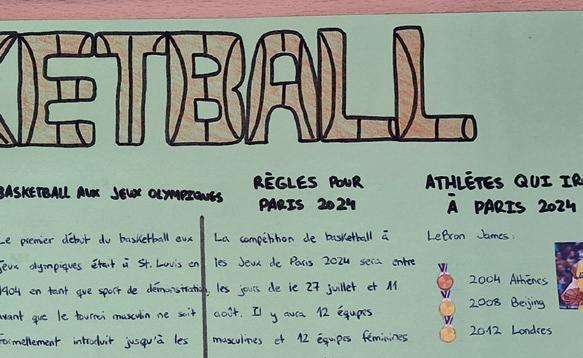 KETBALL
BASKETBALL AUX JEUX OLYMPIQUES
Le premier début du basketball aux
jeux olympiques était à St. Louis en
1904 en tant que sport de démonstration,
avant que le tournoi masculin ne soit
formellement introduit jusqu'à les
RÈGLES POUR
PARIS 2024
La compétition de basketball à
les Jeux de Paris 2024 sera entre
les jours de le 27 juillet et 11
août. Il y aura 12 équips
masculines et 12 équipes féminines
ATHLÈTES QUI IR
À PARIS 2024
LeBron James:
2004 Athènes
2008 Beijing
2012 Londres